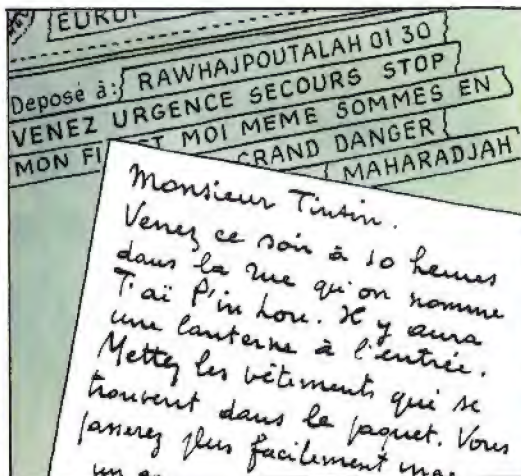 EUROP
Deposé à: RAWHAJPOUTALAH 01 30
VENEZ URGENCE SECOURS STOP
MON FI ET MOI MEME SOMMES EN
GRAND DANGER
MAHARADJAH
Monsieur Tintin.
Venez ce soir à 10 heures
dans la rue qu'on nomme
T'aï P'in Lou. Il y aura
une lanterne à l'entrée.
Mettez les vêtements qui se
trouvent dans le paquet. Vous
passerez plus facilement
un